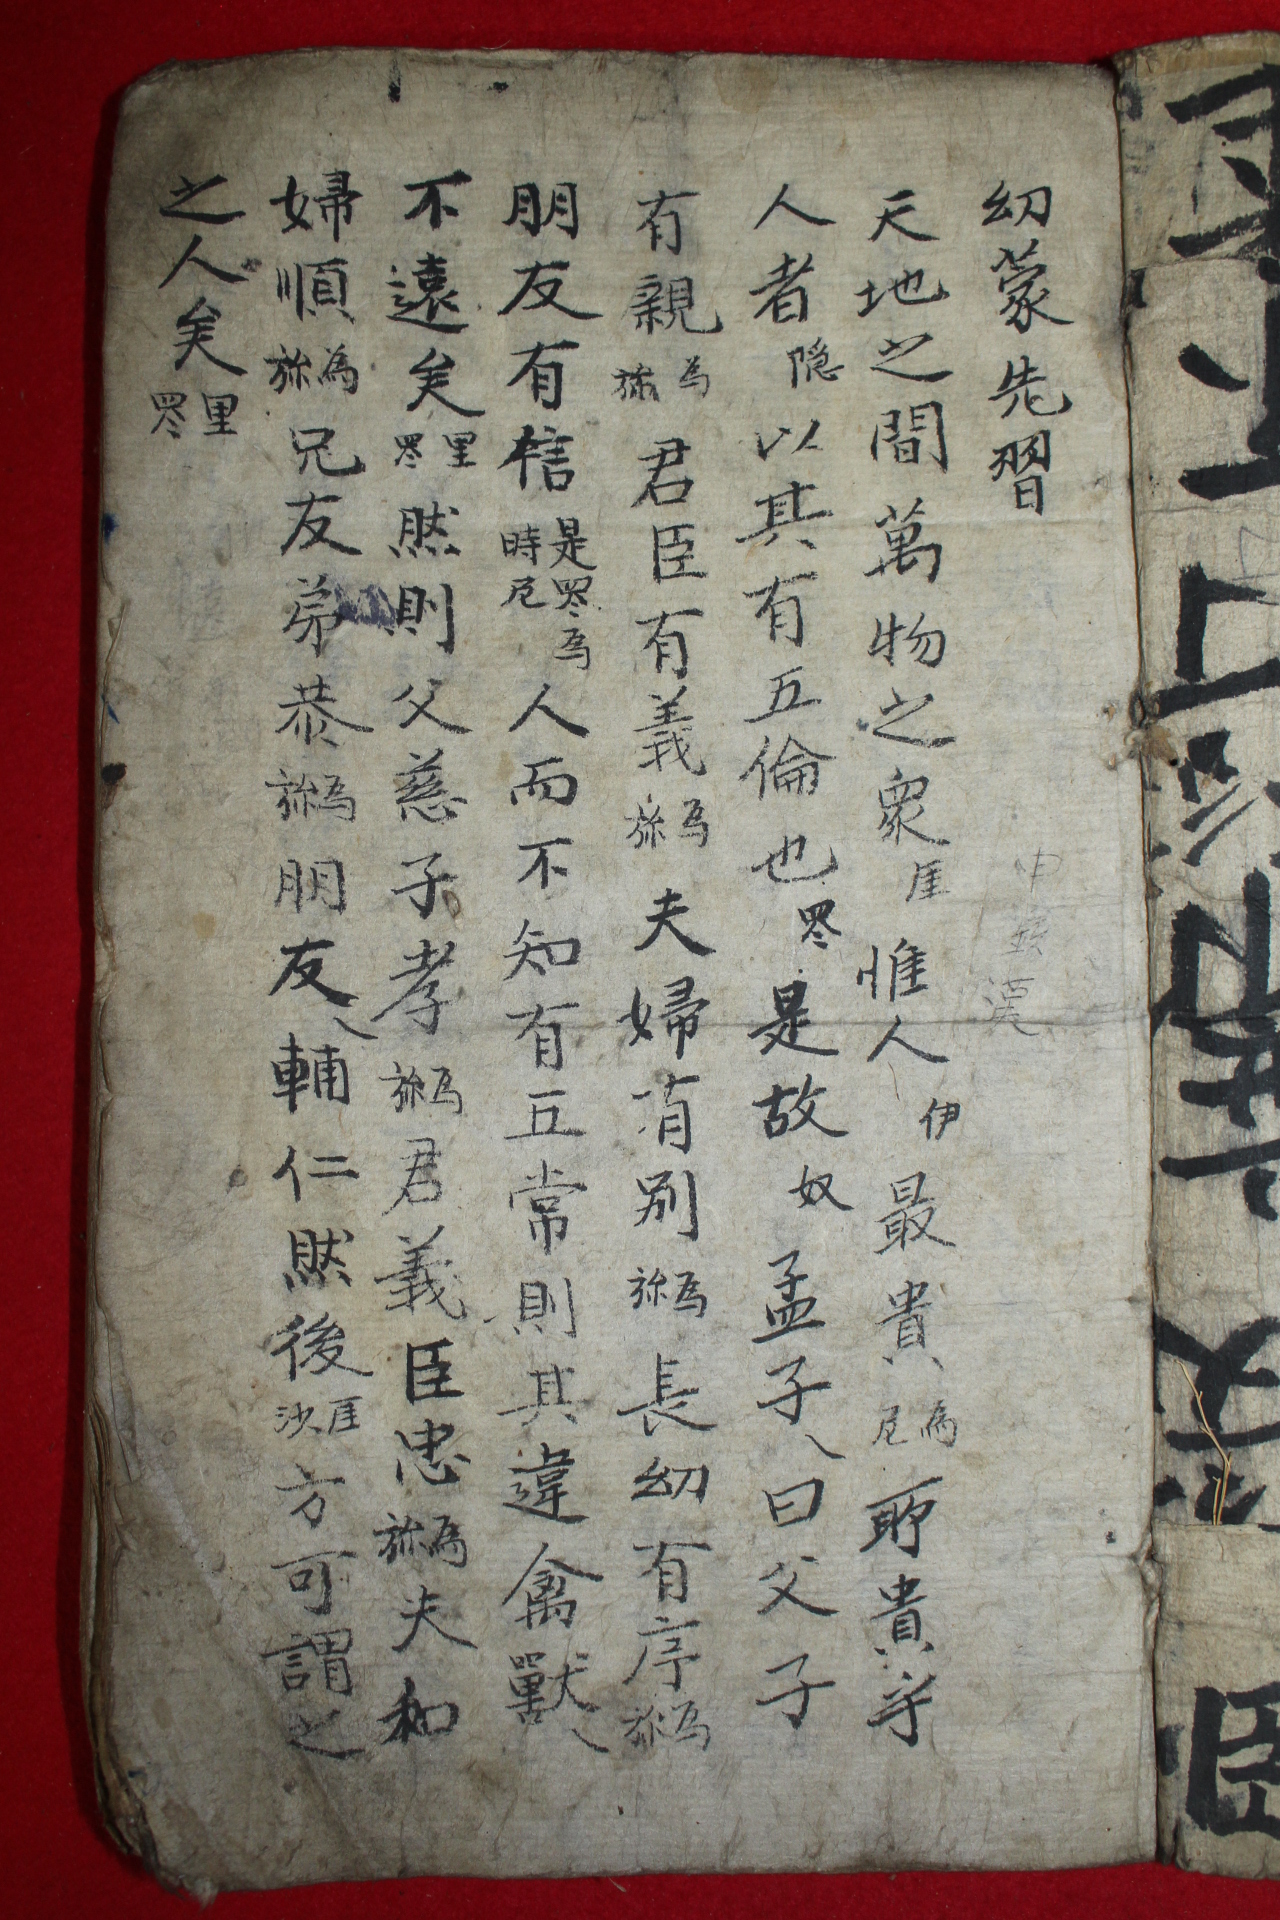 幼蒙先習
天地之間萬物之衆厓惟人伊最貴為尼所貴乎
人者隐以其有五倫也罗是故奴孟子曰父子
有親為旀君臣有義為旀夫婦有别為旀長幼有序為旀
朋友有信是罗為時尼人而不知有五常則其違禽獸
不遠矣里罗然則父慈子孝為旀君義臣忠為旀夫和
婦順為旀兄友弟恭為旀朋友輔仁然後厓沙方可謂之
之人矣里罗